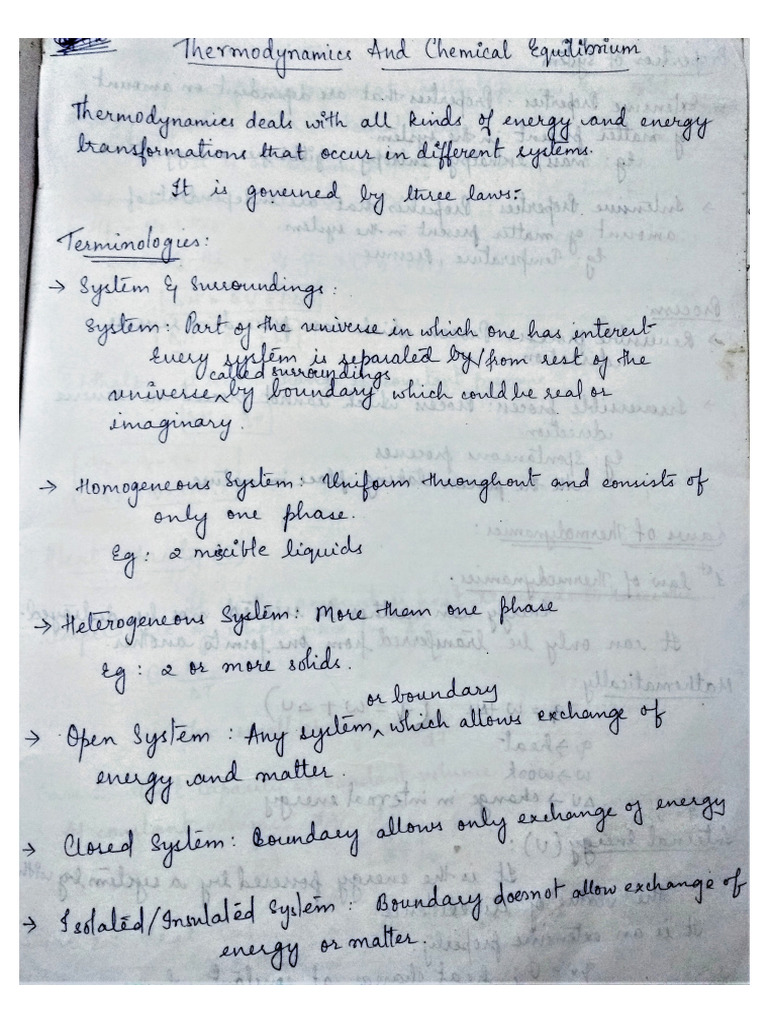 Thermodynamics And Chemical Equilibrium
Thermodynamics deals with all kinds of energy and energy
transformations that occur in different systems.
It is governed by three laws:
Terminologies:
→ System & Surroundings:
System: Part of the universe in which one has interest
Every system is separated by/from rest of the
called surroundings
universe ^ by boundary which could be real or
imaginary.
→ Homogeneous System: Uniform throughout and consists of
only one phase.
Eg: 2 miscible liquids
→ Heterogeneous System: More them one phase
Eg: 2 or more solids.
or boundary
→ Open System: Any system ^ which allows exchange of
energy and matter.
→ Closed System: Boundary allows only exchange of energy
→ Isolated/Insulated System: Boundary doesnot allow exchange of
energy or matter.